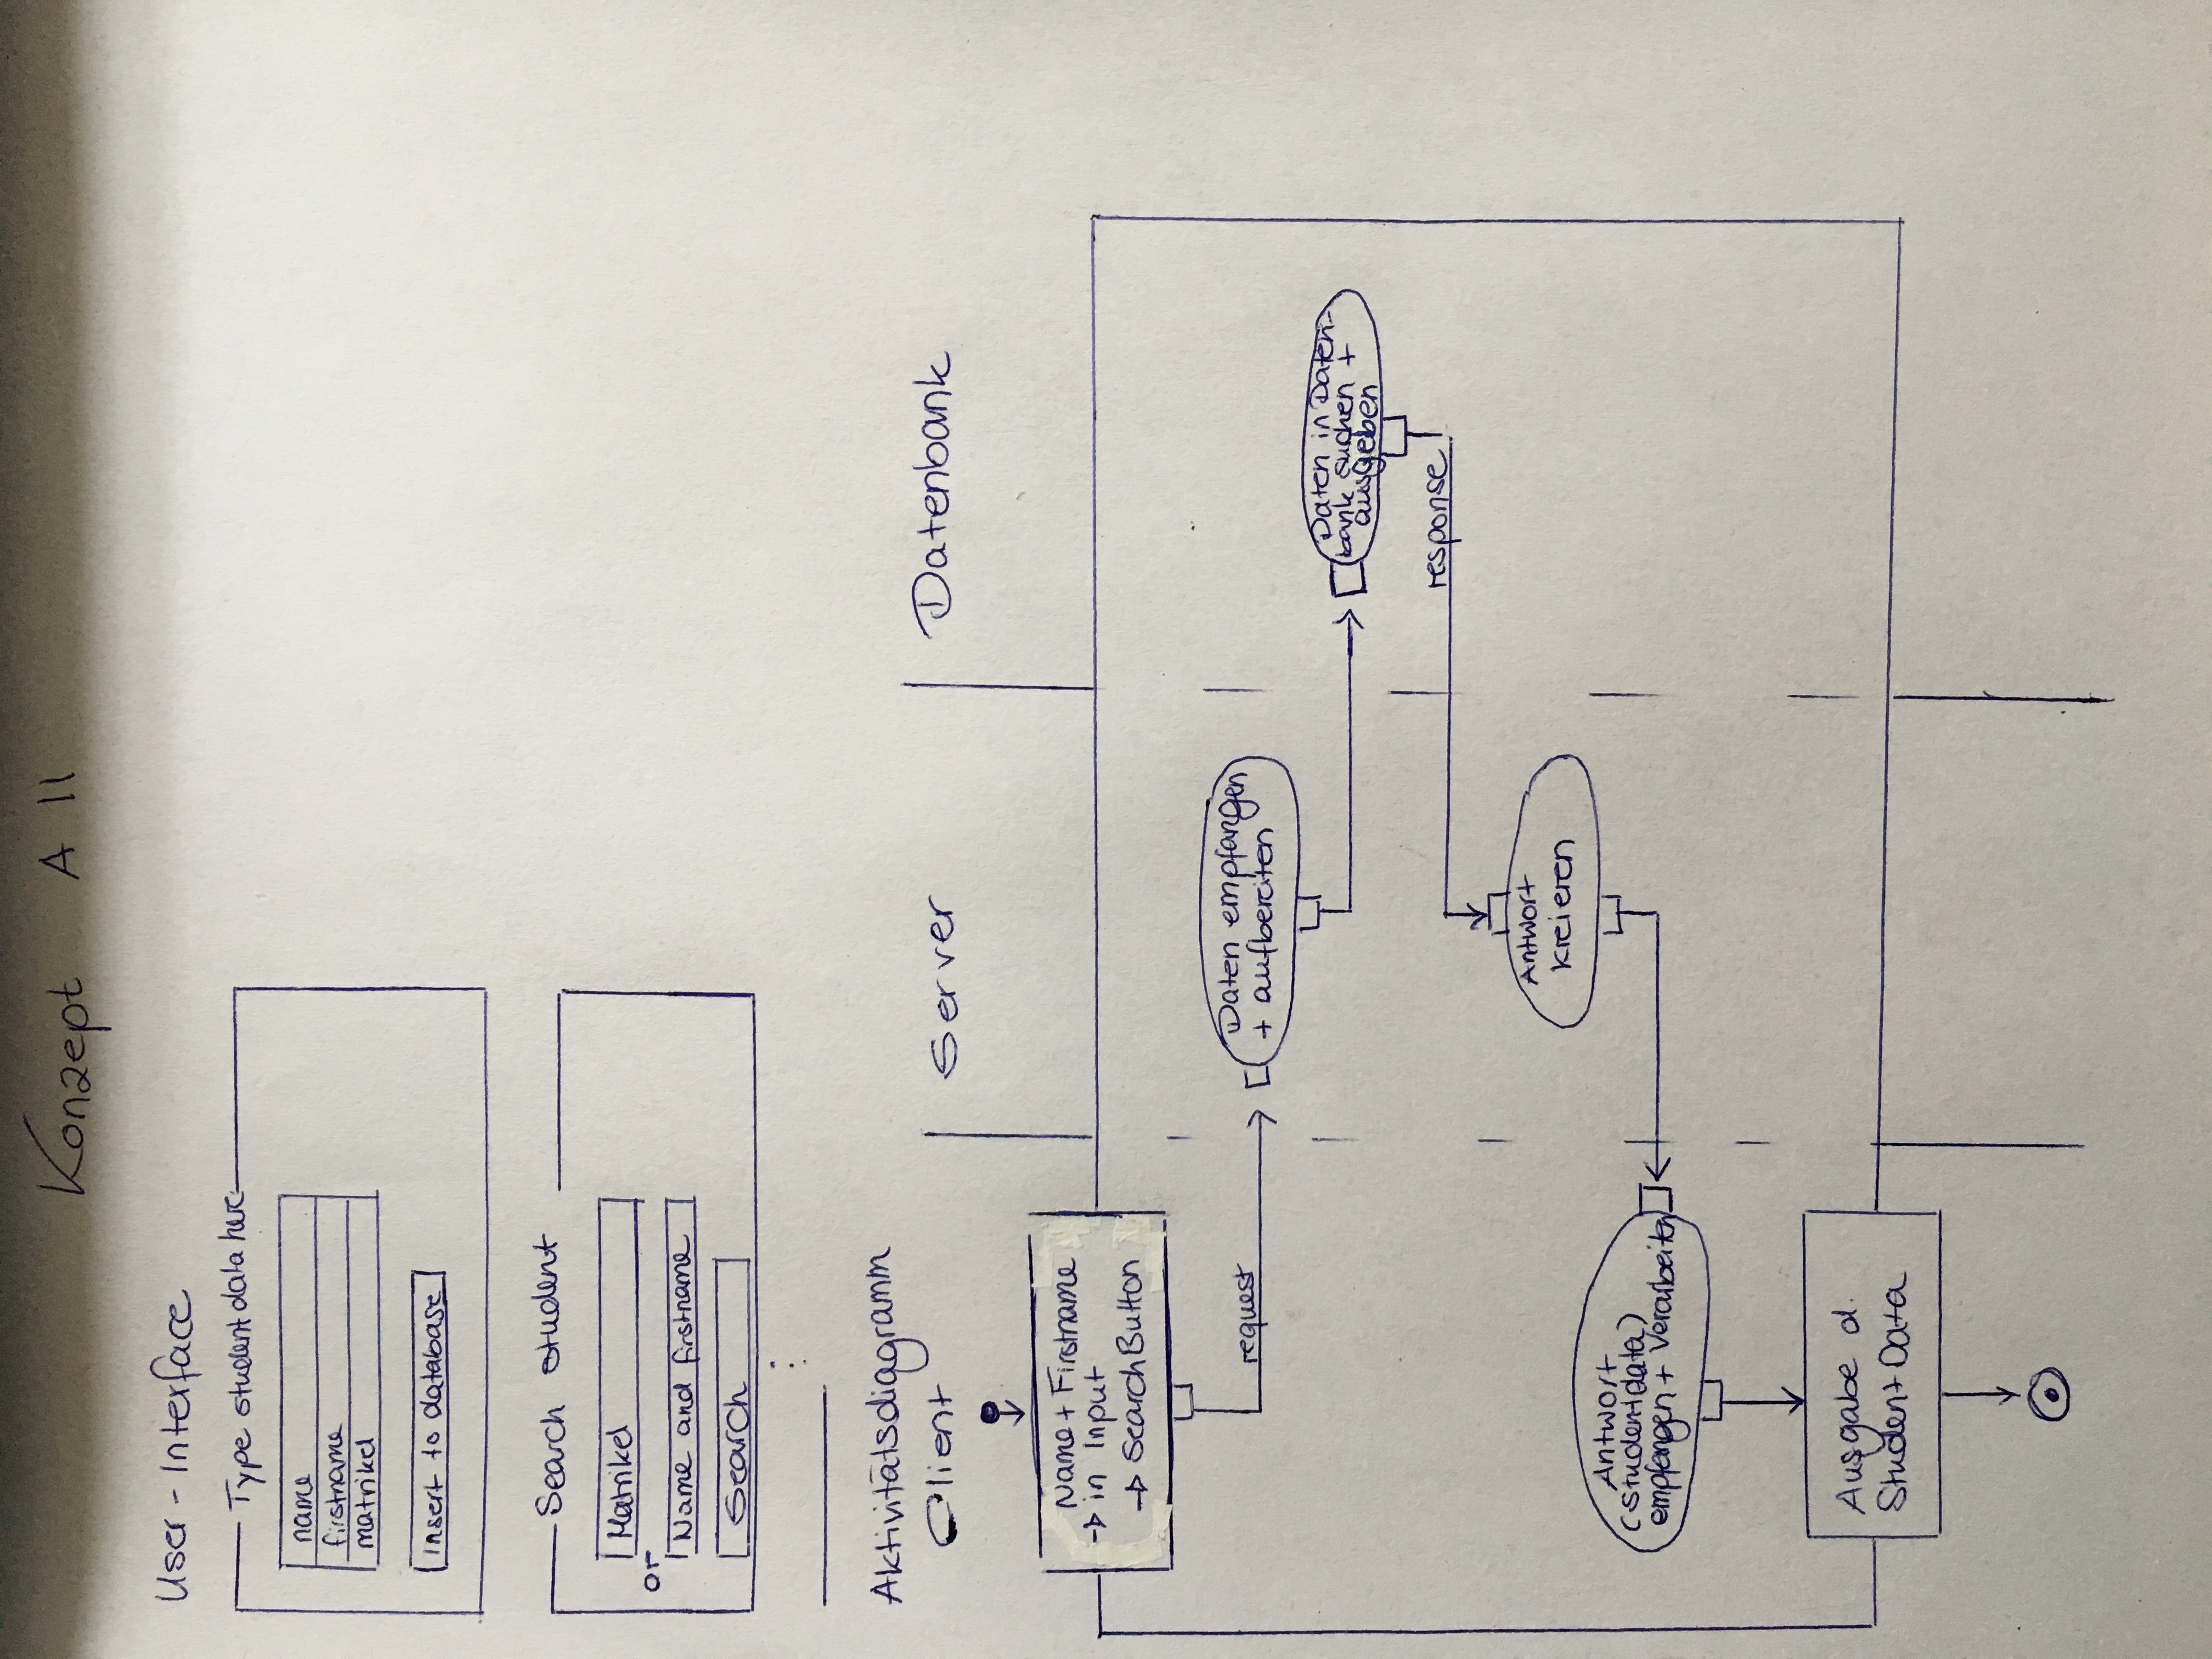 Konzept A 11
User-Interface
Type studentdata here
name
firstname
matrikel
insert to database
Search student
Matrikel
or
Name and firstname
Search
Aktivitätsdiagramm
Client
Server
Datenbank
Name + Firstname
in Input
SearchButton
request
Daten empfangen
+ aufbereiten
Daten in Daten-
bank suchen +
ausgeben
response
Antwort
kreieren
Antwort
(studentdata)
empfangen + Verarbeiten
Ausgabe d.
Student Data